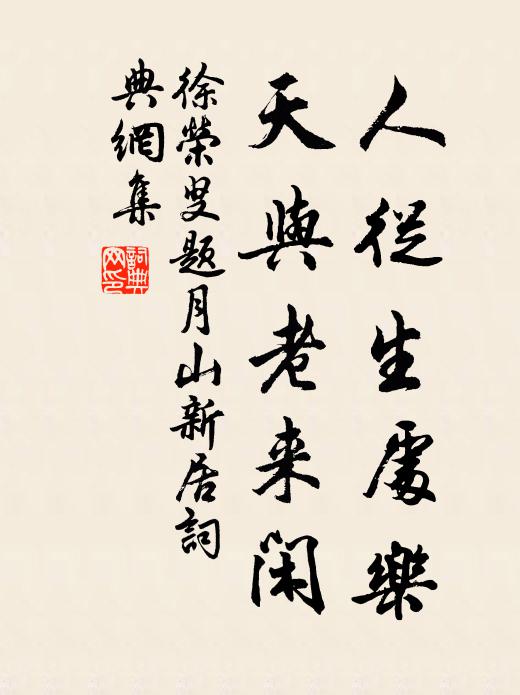 人從生處樂
天與老來閑
徐榮叟題月山新居詞
典網集
詞典網印